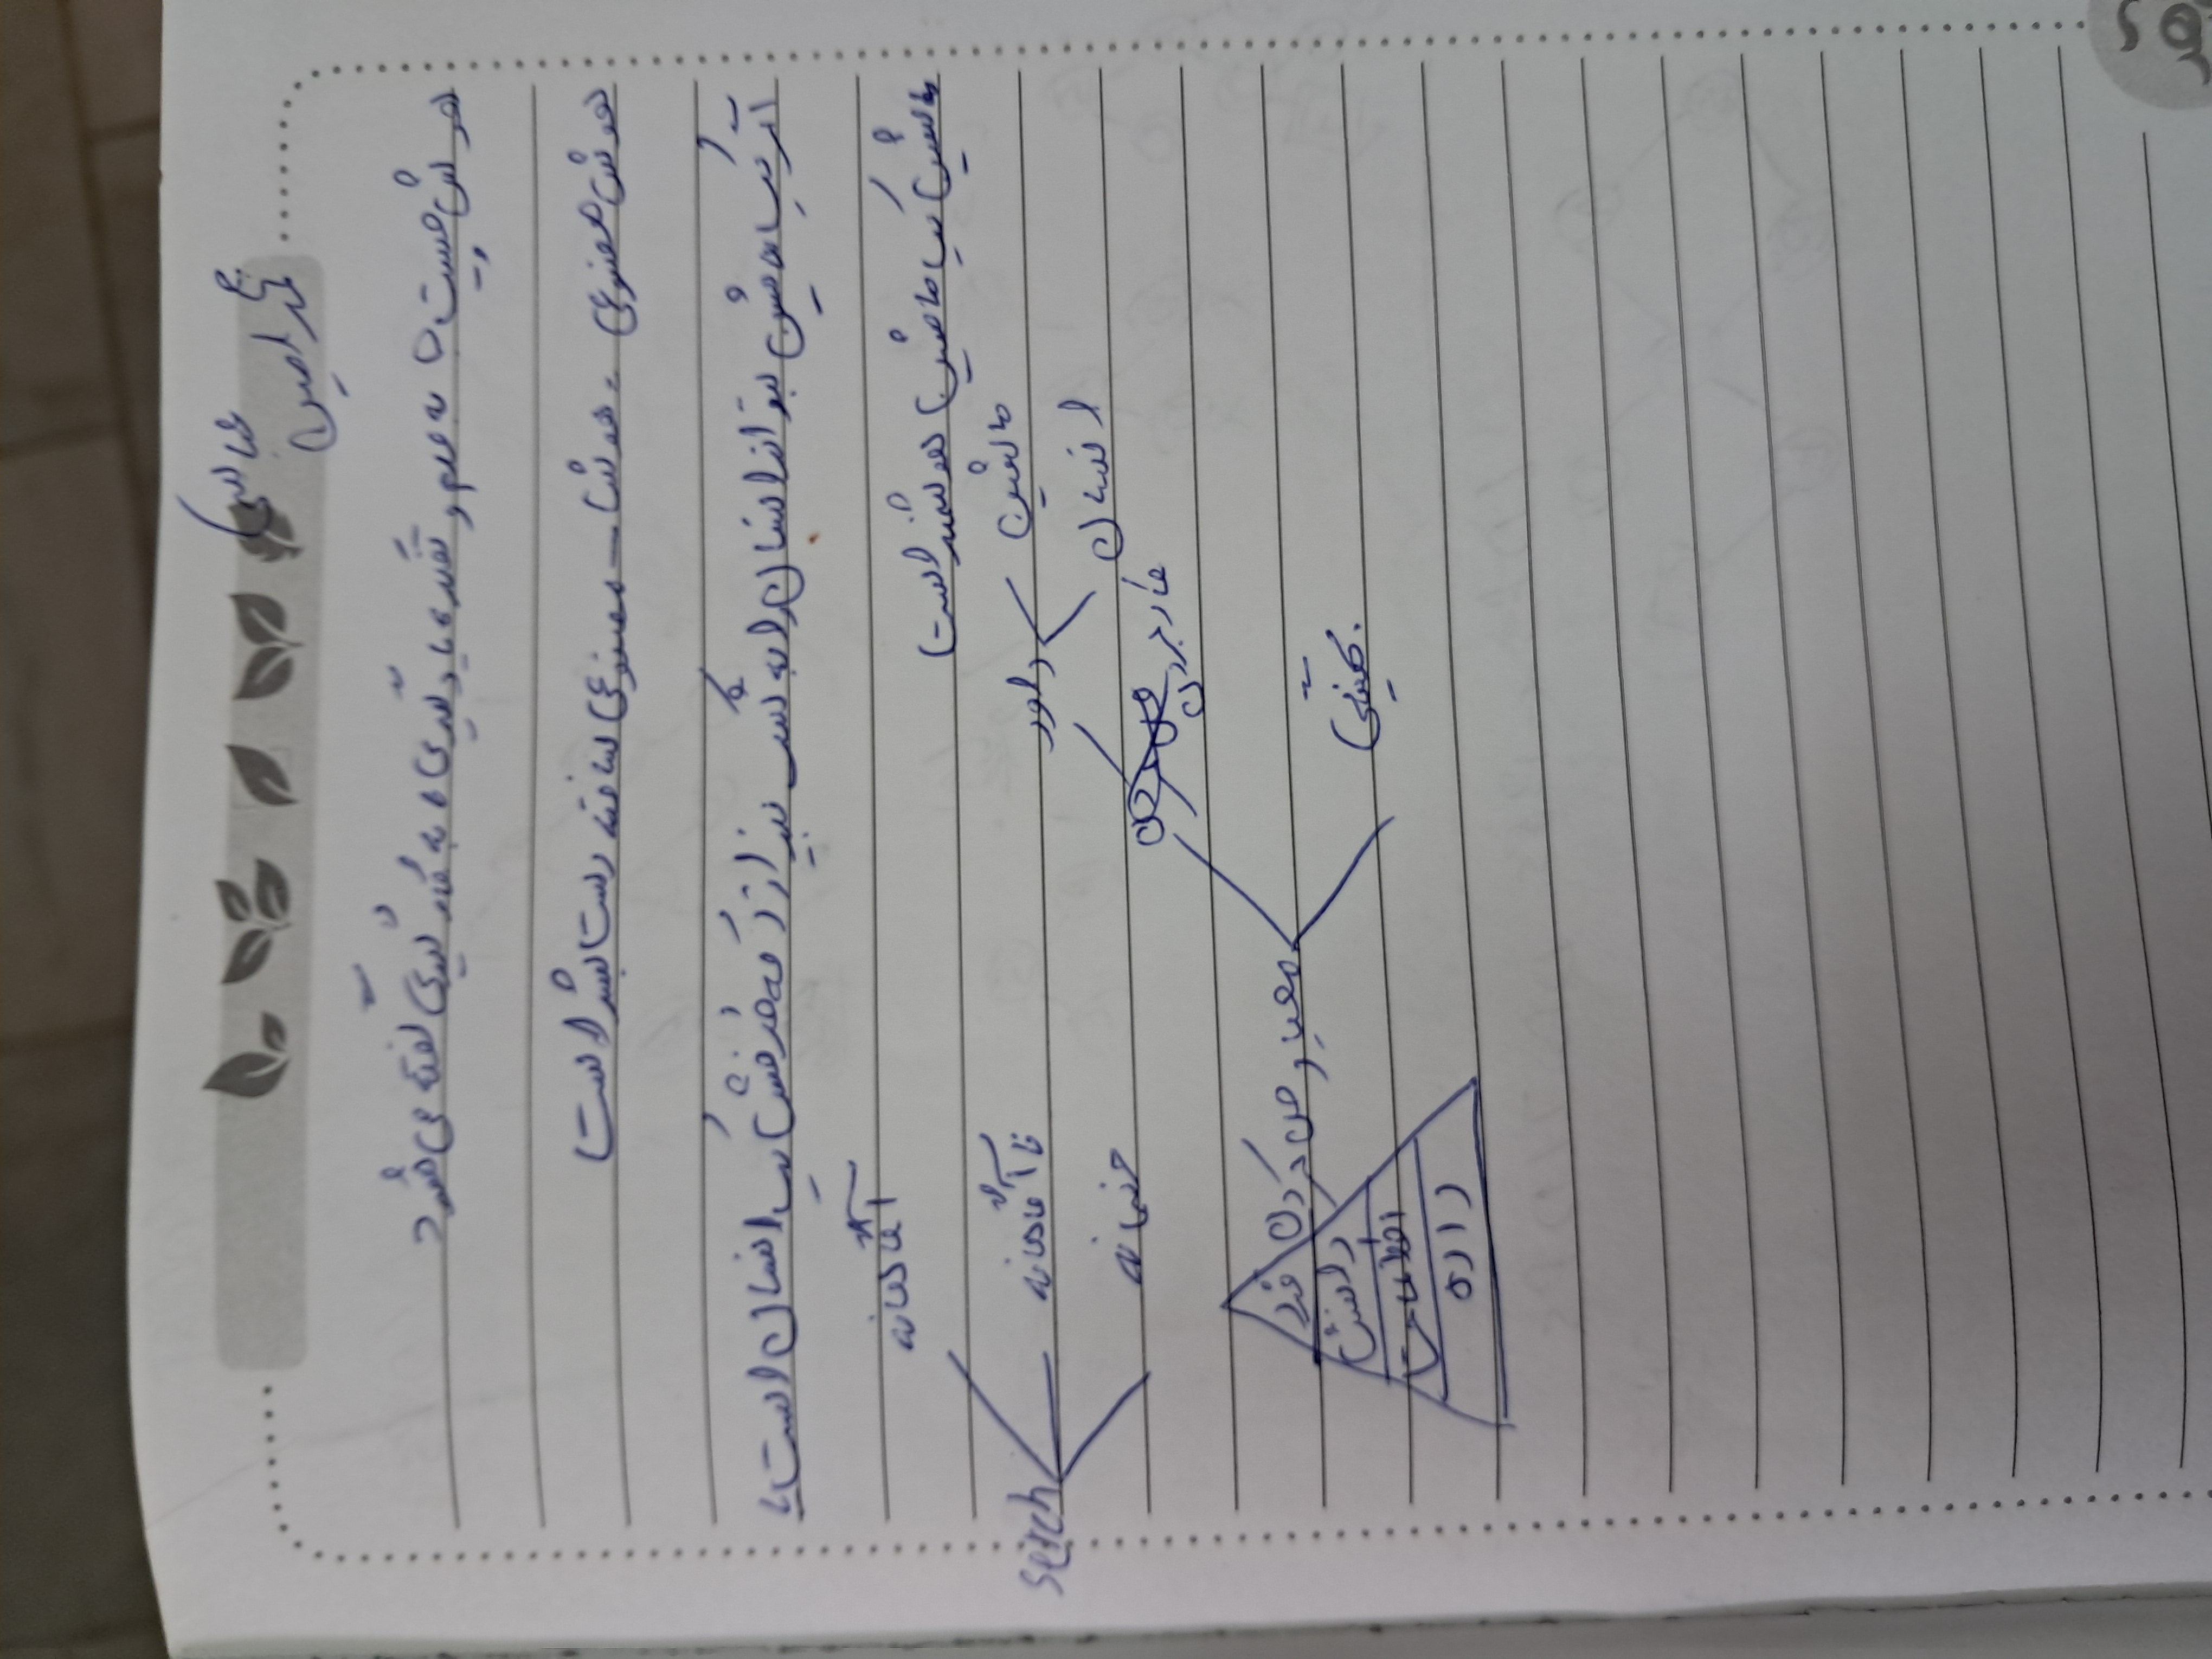 محمد امین عباسی
هوش چیست ؟ به فهم و تفکر، یادگیری، به کار گیری گفته می شود
هوش مصنوعی = هوش مصنوعی ساخته دست بشر است
اگر یک ماشین بتواند انسان را به شک بیندازد که طرفش یک انسان است یا
ماشین یک ماشین هوشمند است
serch
آگاهانه
ناآگاهانه
خصمانه
داور
ماشین
انسان
کار کردن
معیار حل کردن
بهینگی
خرد
دانش
اطلاعات
داده